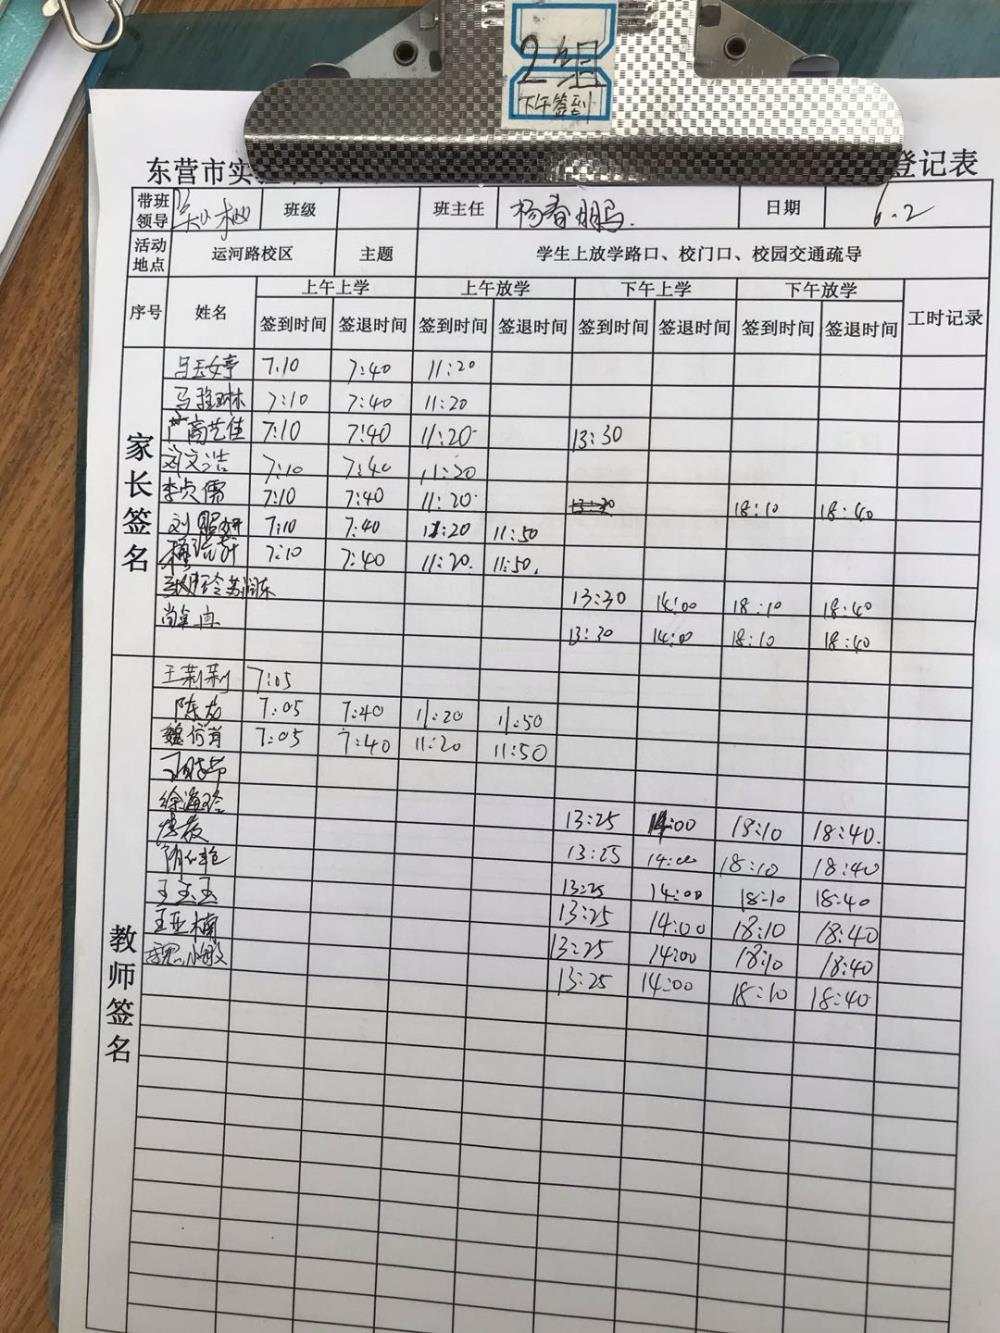 2组
下午签到
东营市实 登记表
带班领导 班级 班主任 杨春鹏 日期 6.2
活动地点 运河路校区 主题 学生上放学路口、校门口、校园交通疏导
序号 姓名 上午上学 上午放学 下午上学 下午放学 工时记录
签到时间 签退时间 签到时间 签退时间 签到时间 签退时间 签到时间 签退时间
家长签名
7:10 7:40 11:20
马雅琳 7:10 7:40 11:20
商艺佳 7:10 7:40 11:20 13:30
刘文浩 7:10 7:40 11:20
李贞儒 7:10 7:40 11:20 18:10 18:40
刘 7:10 7:40 11:20 11:50
7:10 7:40 11:20 11:50
13:30 14:00 18:10 18:40
13:30 14:00 18:10 18:40
教师签名
王莉莉 7:05
陈龙 7:05 7:40 11:20 11:50
魏 7:05 7:40 11:20 11:50
徐海玲
13:25 14:00 18:10 18:40
13:25 14:00 18:10 18:40
王玉玉 13:25 14:00 18:10 18:40
王亚楠 13:25 14:00 18:10 18:40
13:25 14:00 18:10 18:40
13:25 14:00 18:10 18:40